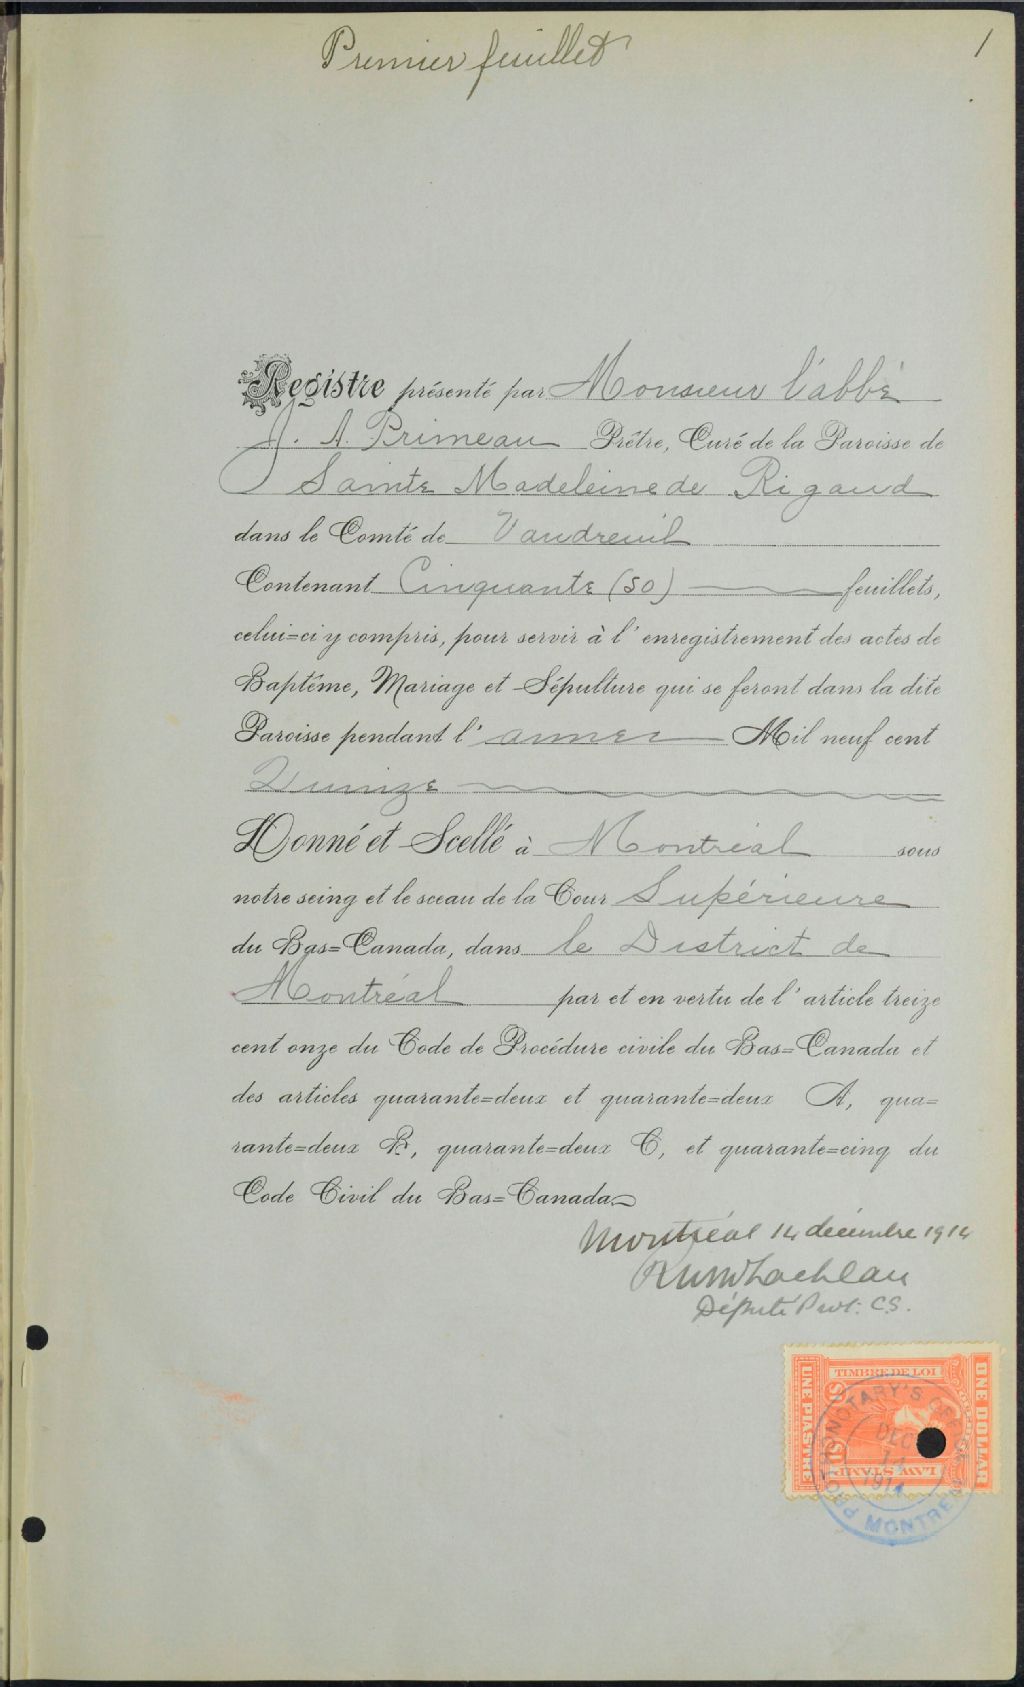 Premier feuillet
1
Registre présenté par Monsieur l'abbé
J. A. Primeau Prêtre, Curé de la Paroisse de
Sainte Madeleine de Rigaud
dans le Comté de Vaudreuil
Contenant Cinquante (50) feuillets,
celui=ci y compris, pour servir à l'enregistrement des actes de
Baptême, Mariage et Sépulture qui se feront dans la dite
Paroisse pendant l'année Mil neuf cent
Quinze
Donné et Scellé à Montréal sous
notre seing et le sceau de la Cour Supérieure
du Bas=Canada, dans le District de
Montréal par et en vertu de l'article treize
cent onze du Code de Procédure civile du Bas=Canada et
des articles quarante=deux et quarante=deux A, qua=
rante=deux B, quarante=deux C, et quarante=cinq du
Code Civil du Bas=Canada
Montréal 14 décembre 1914
Député Prot: C.S.
TIMBRE DE LOI
UNE PIASTRE
ONE DOLLAR
LAW STAMP
PROTHONOTARY'S OFFICE
DEC
14
1914
MONTREAL